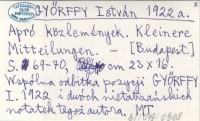 GYÖRFFY István 1922 a.
Apró közlemények. Kleinere
Mitteilungen. - [Budapest].
S. 69-70, cm 23 x 16.
Wspólna odbitka pozycji GYÖRFFY
I. 1922 i dwóch nietatrzańskich
notatek tegoż autora. MT